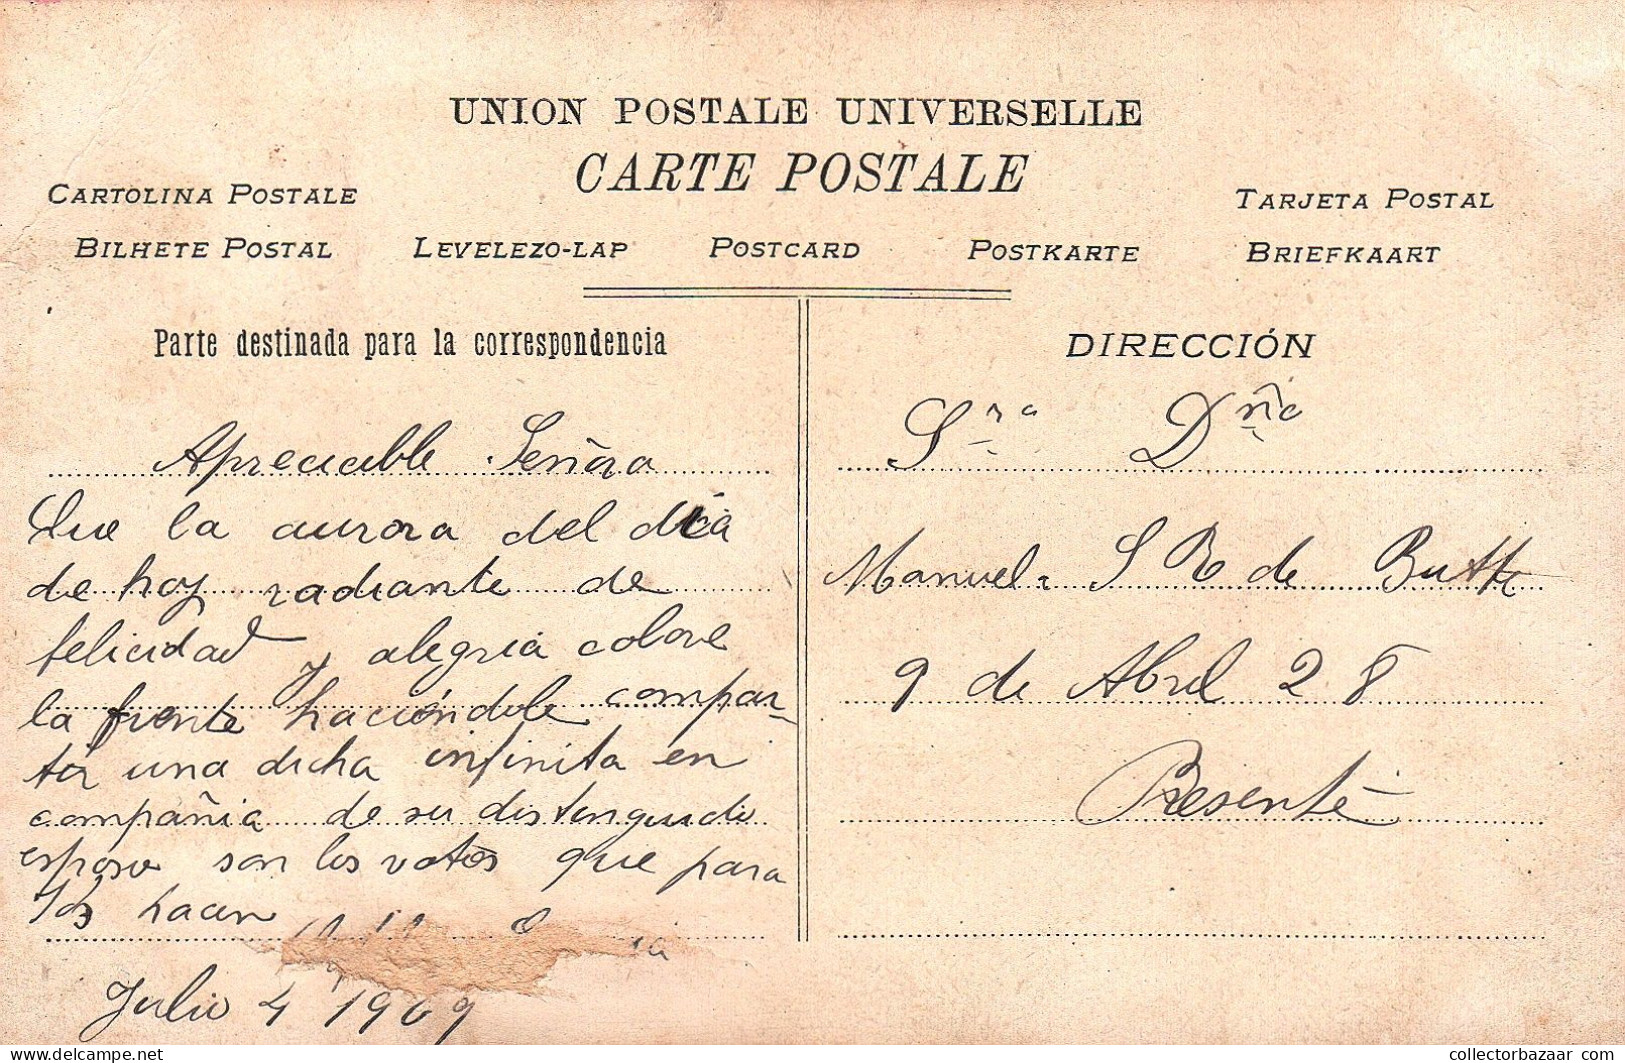 UNION POSTALE UNIVERSELLE
CARTE POSTALE
CARTOLINA POSTALE
TARJETA POSTAL
BILHETE POSTAL LEVELEZO-LAP POSTCARD POSTKARTE BRIEFKAART
Parte destinada para la correspondencia
Apreciable Señora
Que la aurora del dia
de hoy radiante de
felicidad y alegria colore
la frente haciéndole compar-
tir una dicha infinita en
compañia de su distinguido
esposo son los votos que para
Vd hacen
Julio 4 1909
DIRECCIÓN
Sra Dña
Manuela S R de
9 de Abril 28
Presente
collectorbazaar.com
collectorbazaar.com